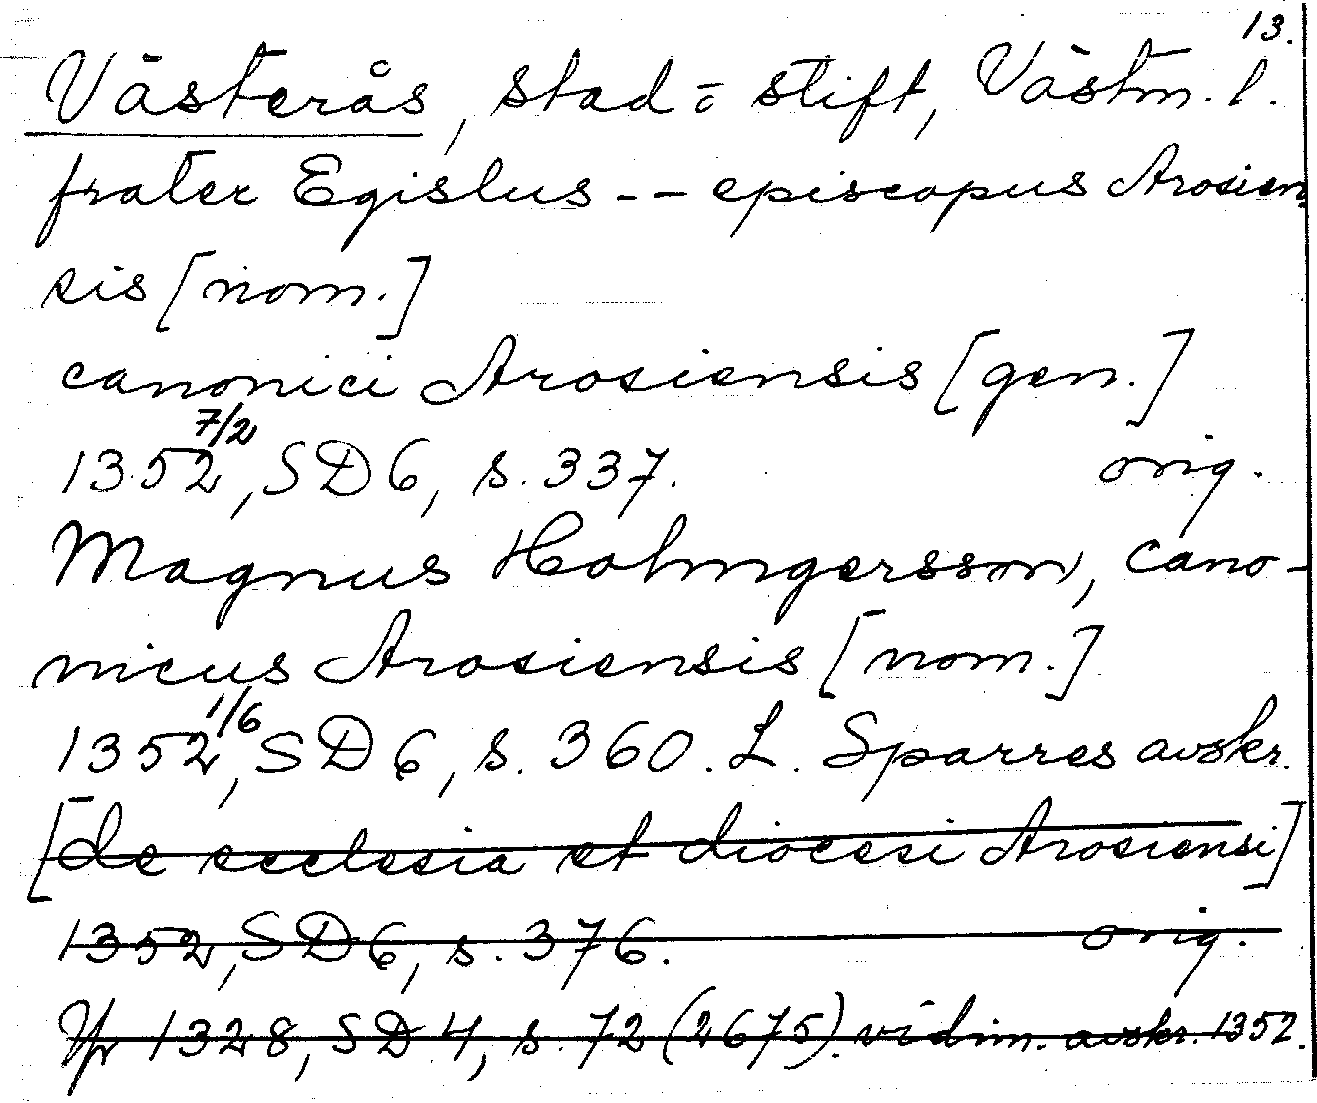 13.
Västerås, stad o. stift, Västm. l.
frater Egislus -- episcopus Arosien-
sis [nom.]
canonici Arosiensis [gen.]
1352 7/2, SD 6, s. 337. orig.
Magnus Holmgersson, cano-
nicus Arosiensis [nom.]
1352 1/6, SD 6, s. 360. L. Sparres avskr.
[de ecclesia et diocesi Arosiensi]
1352, SD 6, s. 376. orig.
1328, SD 4, s. 72 (2675). vidim. avskr. 1352.